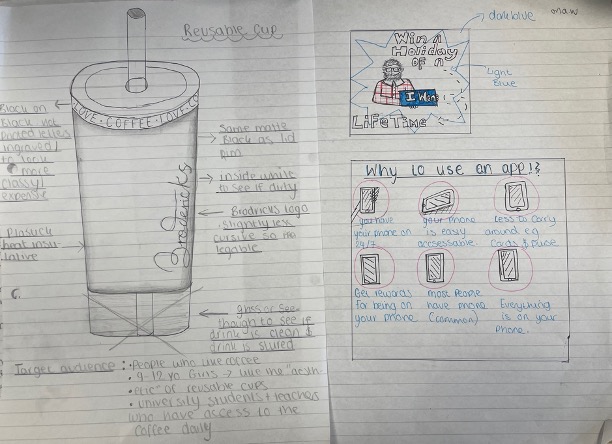 Reusable Cup
LOVE · COFFEE · LOVE · CO
Black on
Black not
classy/
expensive
Plastick
heat insu-
lative
Same matte
Black as lid
rim
inside white
to see if dirty
Brodricks logo
slightly less
cursive so its
legable
Brodericks
glass or see-
though to see if
drink is clean &
drink is stired
Target audience :
• People who like coffee
• 9-12 yo Guys → like the "aesth-
etic" of reusable cups
• university students + teachers
who have access to the
coffee daily
dark blue
light
Blue
Win A
Holiday
of a
I Won!
LifeTime
Why to use an app!?
you have
your phone on
24/7
your phone
is easy
accessable.
Less to carry
around e.g
cards & purse
Get rewards
for being on
your phone
most People
have phone
(common)
Everything
is on your
Phone.